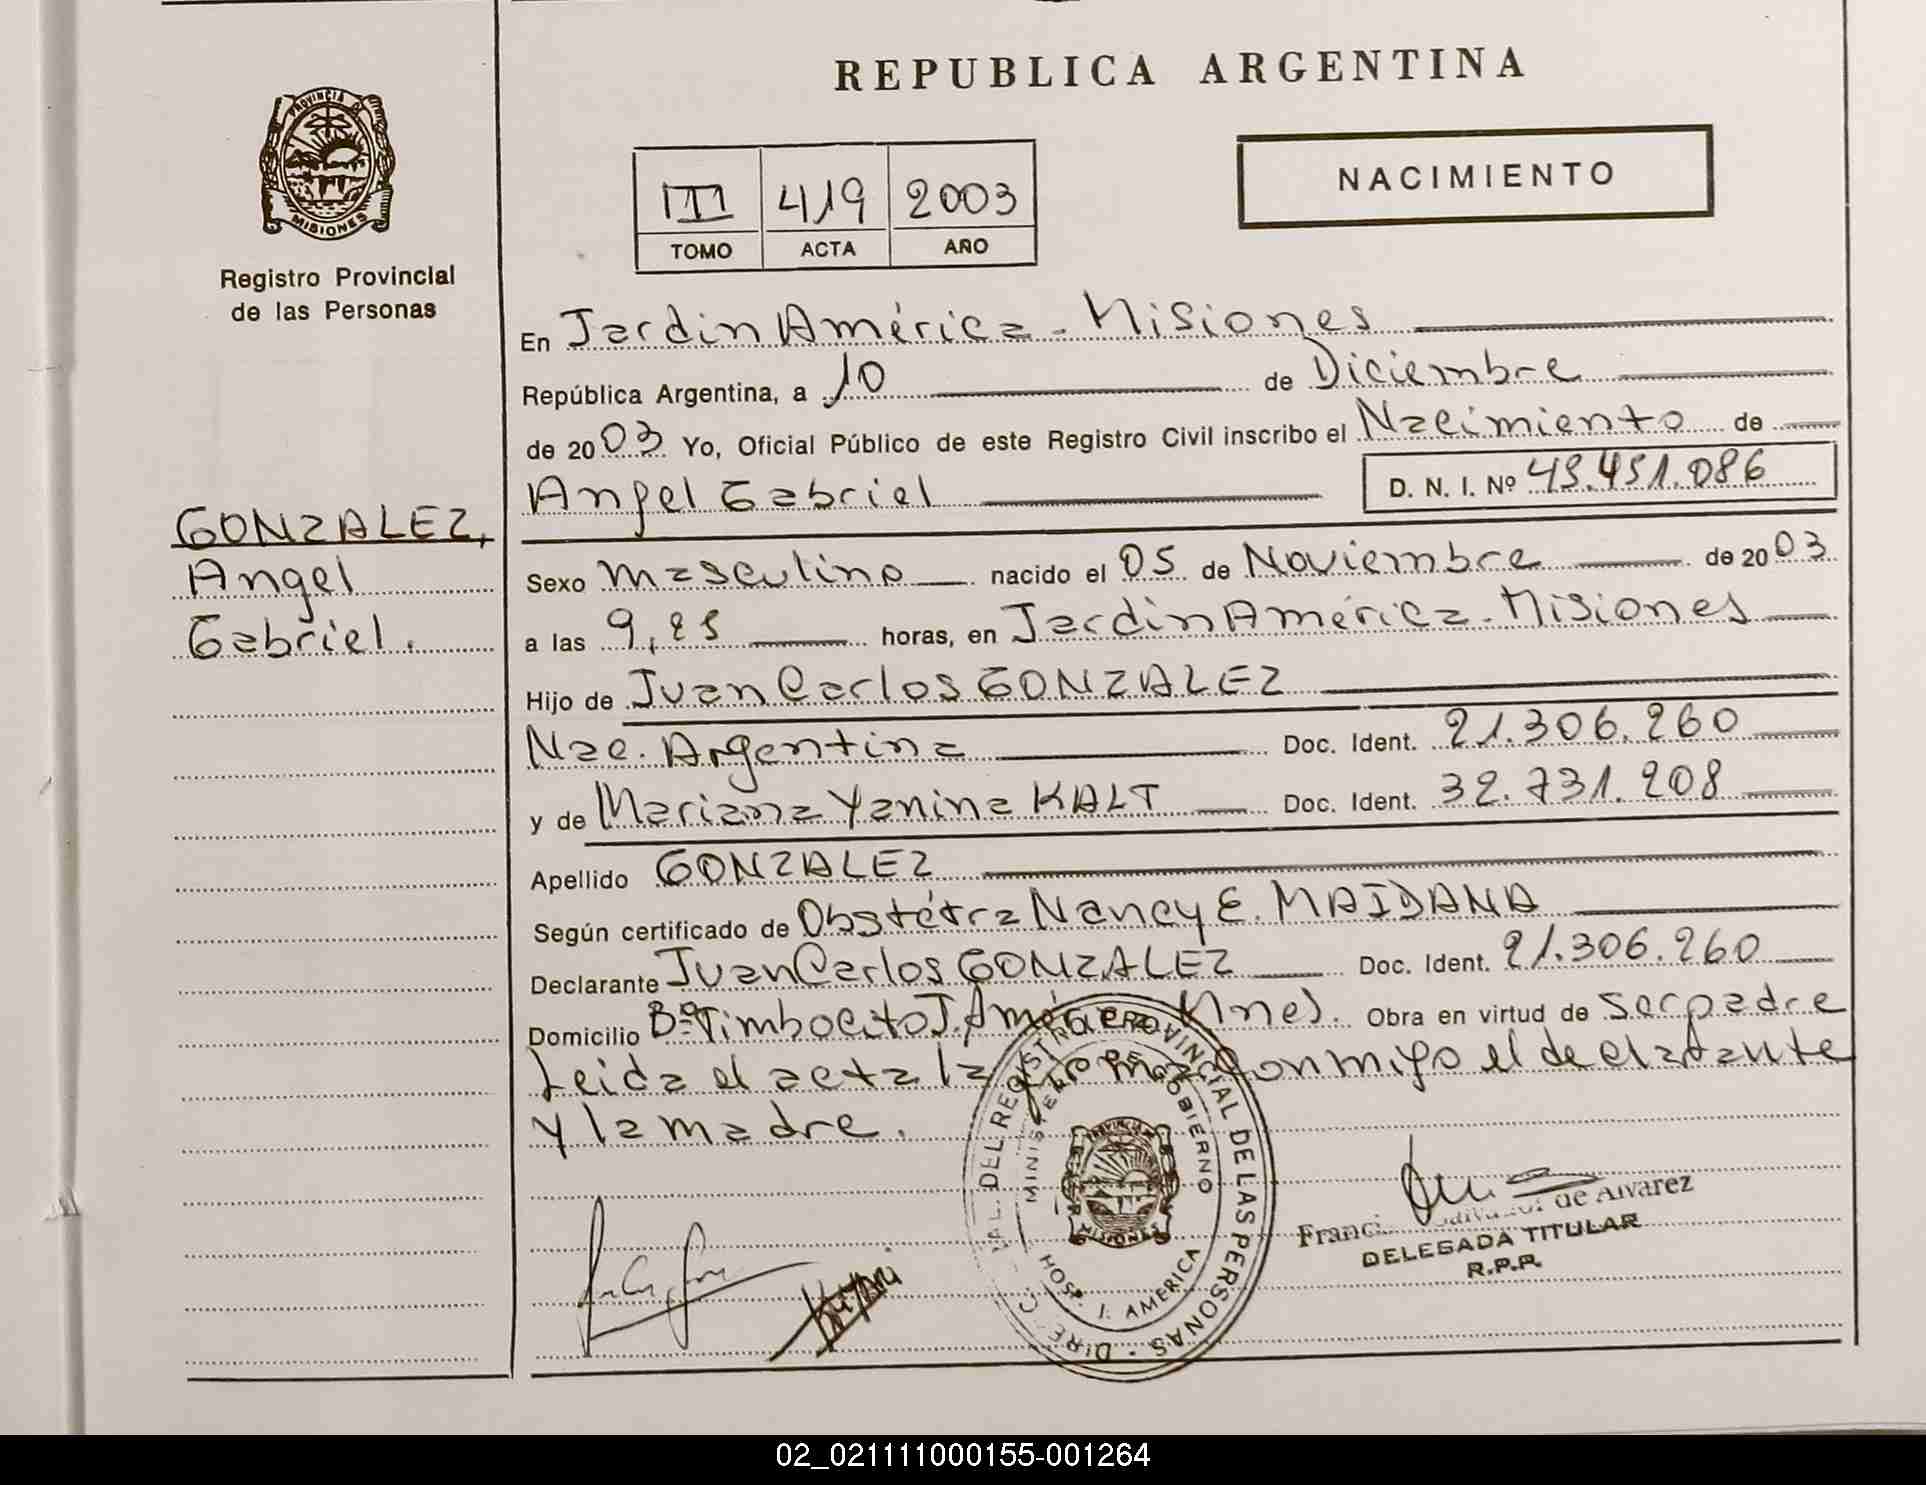 REPUBLICA ARGENTINA
PROVINCIA DE
MISIONES
Registro Provincial
de las Personas
III 419 2003
TOMO ACTA AÑO
NACIMIENTO
GONZALEZ,
Angel
Gabriel.
En Jardin América - Misiones
República Argentina, a 10 de Diciembre
de 2003 Yo, Oficial Público de este Registro Civil inscribo el Nacimiento de
Angel Gabriel D. N. I. Nº 45.451.086
Sexo masculino nacido el 05 de Noviembre de 2003
a las 9,25 horas, en Jardin América - Misiones
Hijo de Juan Carlos GONZALEZ
Nac. Argentina Doc. Ident. 21.306.260
y de Mariana Yanina KALT Doc. Ident. 32.731.208
Apellido GONZALEZ
Según certificado de Obstétra Nancy E. MAIDANA
Declarante Juan Carlos GONZALEZ Doc. Ident. 21.306.260
Domicilio Bº Timbocito J. América Mnes. Obra en virtud de ser padre
Leida el acta la firma conmigo el declarante
y la madre.
DIREC. GRAL. DEL REGISTRO PROVINCIAL DE LAS PERSONAS
MINISTERIO DE GOBIERNO
HOSP. J. AMERICA
de Alvarez
DELEGADA TITULAR
R.P.P.
02_021111000155-001264